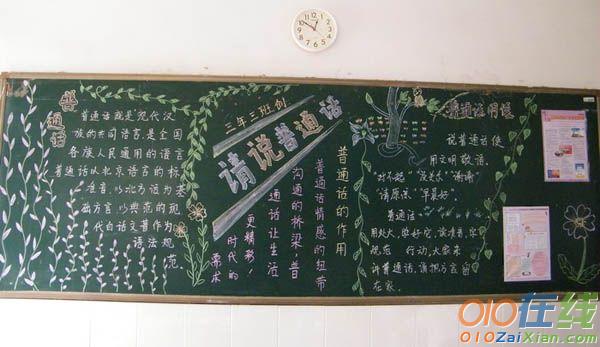 普通话
普通话就是现代汉
族的共同语言，是全国
各族人民通用的语言
普通话以北京语言的标
准音，以北方话为基
础方言，以典范的现
代白话文著作为
语法规
范。
三年三班创
请说普通话
普通话的作用
普通话情感的纽带
沟通的桥梁普
通话让生活
更精彩！
时代的
要求
说普通话使
用文明敬语。
"对不起" "没关系" "谢谢"
"请原谅" "早晨好"。
普通话
用处大，学好它，
规范 行动，大家来
讲普通话，请把方言留
在家。
010在线
010ZaiXian.com